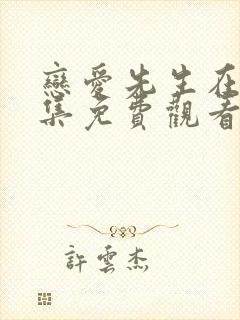 戀愛先生在
集免費觀看
許雲杰